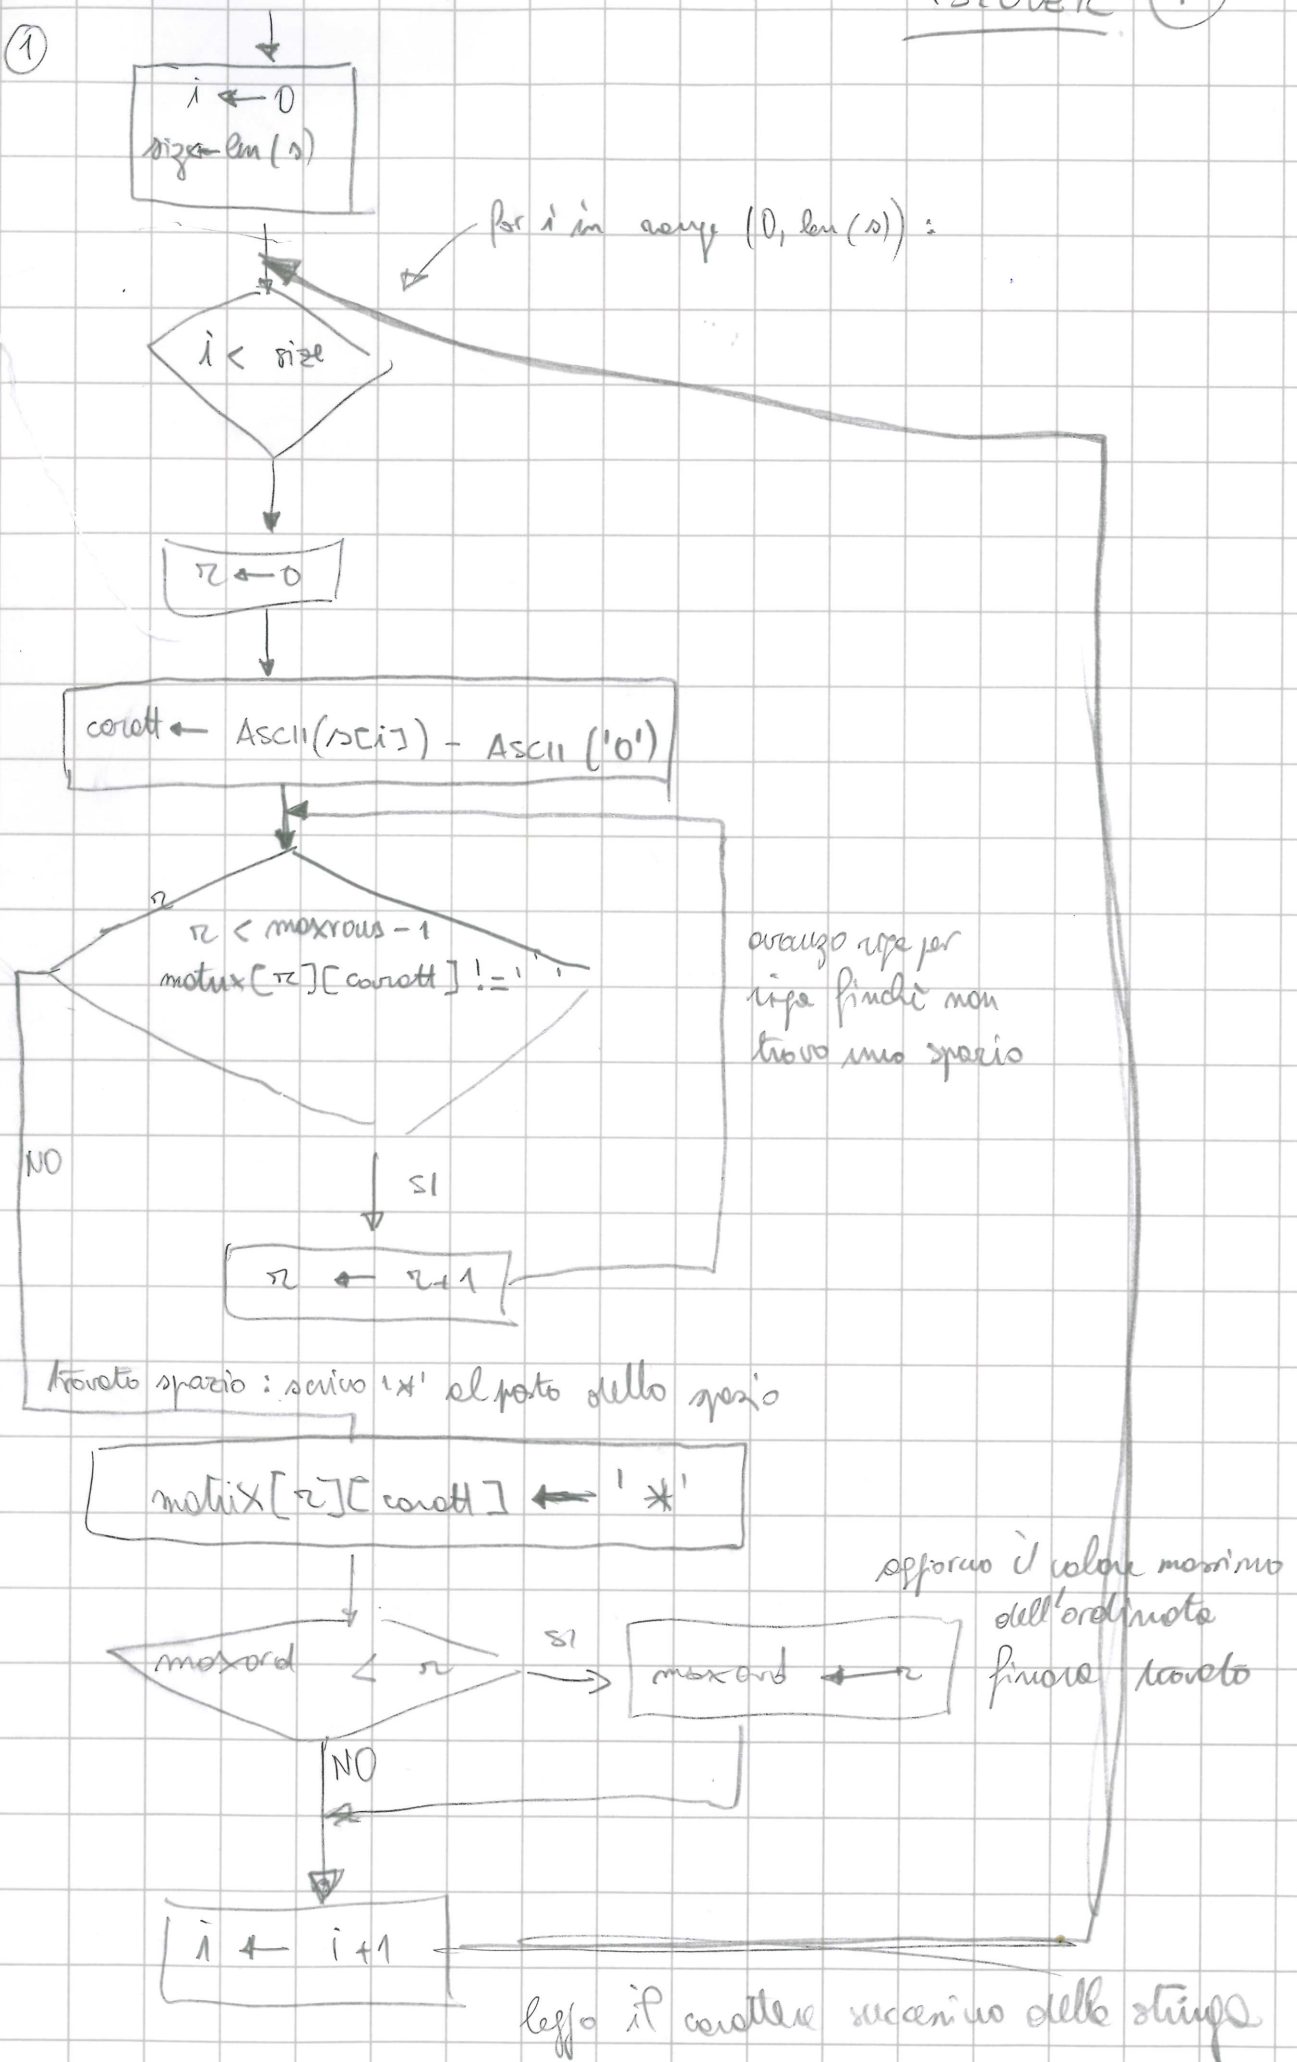 1
i ← 0
size ← len(s)
for i in range (0, len(s)):
i < size
r ← 0
caratt ← ASCII(s[i]) - ASCII('0')
r
r < maxrows - 1
matrix[r][caratt] != ' '
avanzo riga per
riga finchè non
trovo uno spazio
NO
SI
r ← r+1
trovato spazio: scrivo '*' al posto dello spazio
matrix[r][caratt] ← '*'
aggiorno il valore massimo
dell'ordinata
finora trovato
maxord < r
SI
maxord ← r
NO
i ← i+1
leggo il carattere successivo della stringa